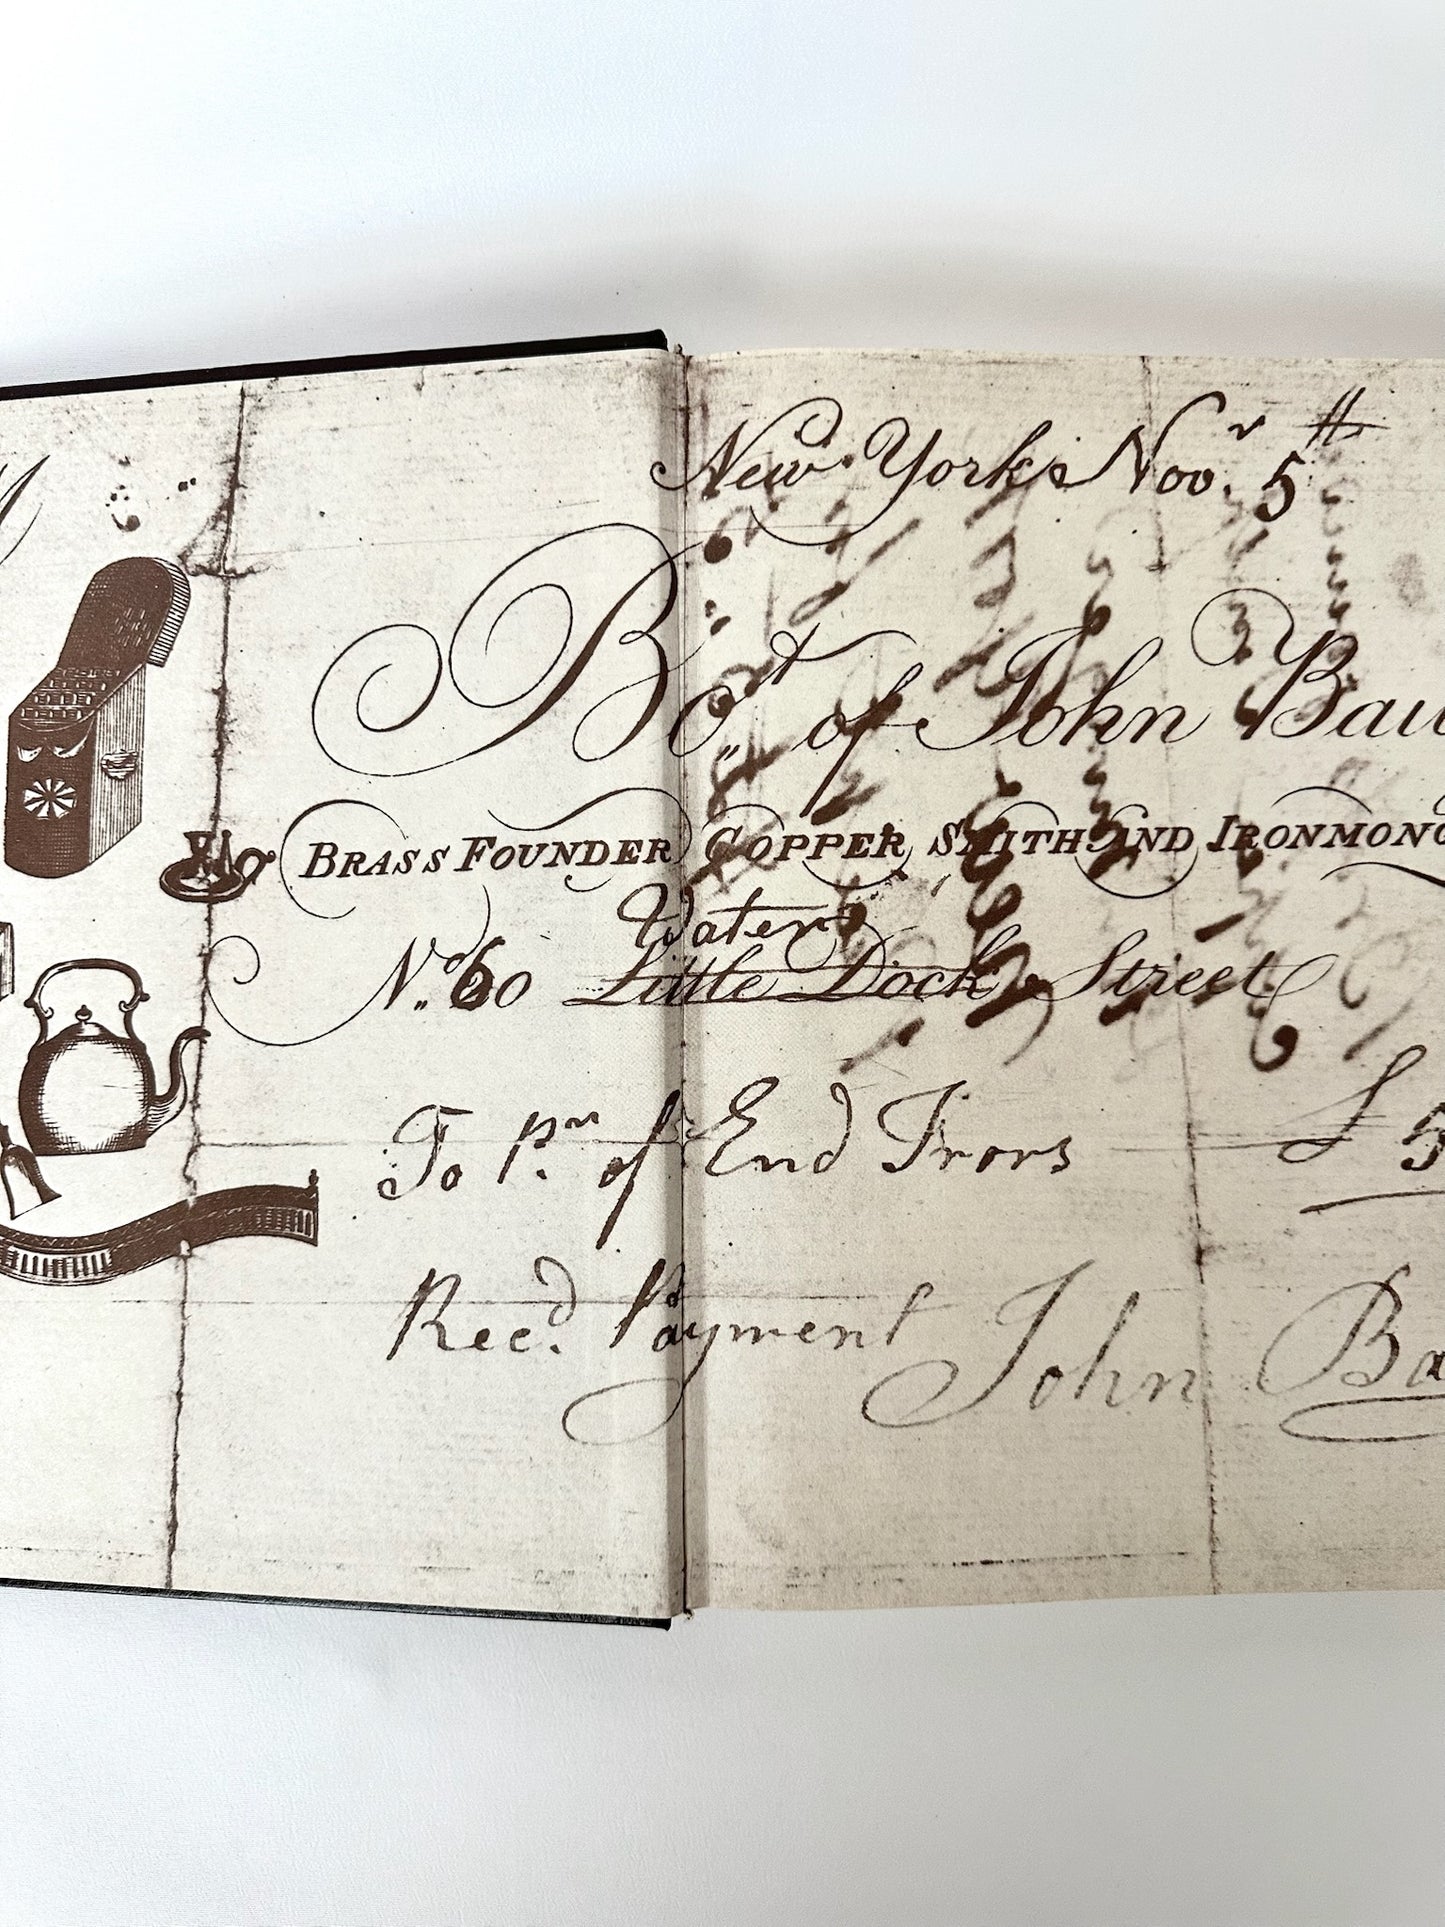 New York Nov.r 5th
Bo.t of John Bai
BRASS FOUNDER COPPER SMITH AND IRONMONG
Water
No. 60 Little Dock Street
To Pr. of End Irons £ 5
Rec.d Payment John Ba